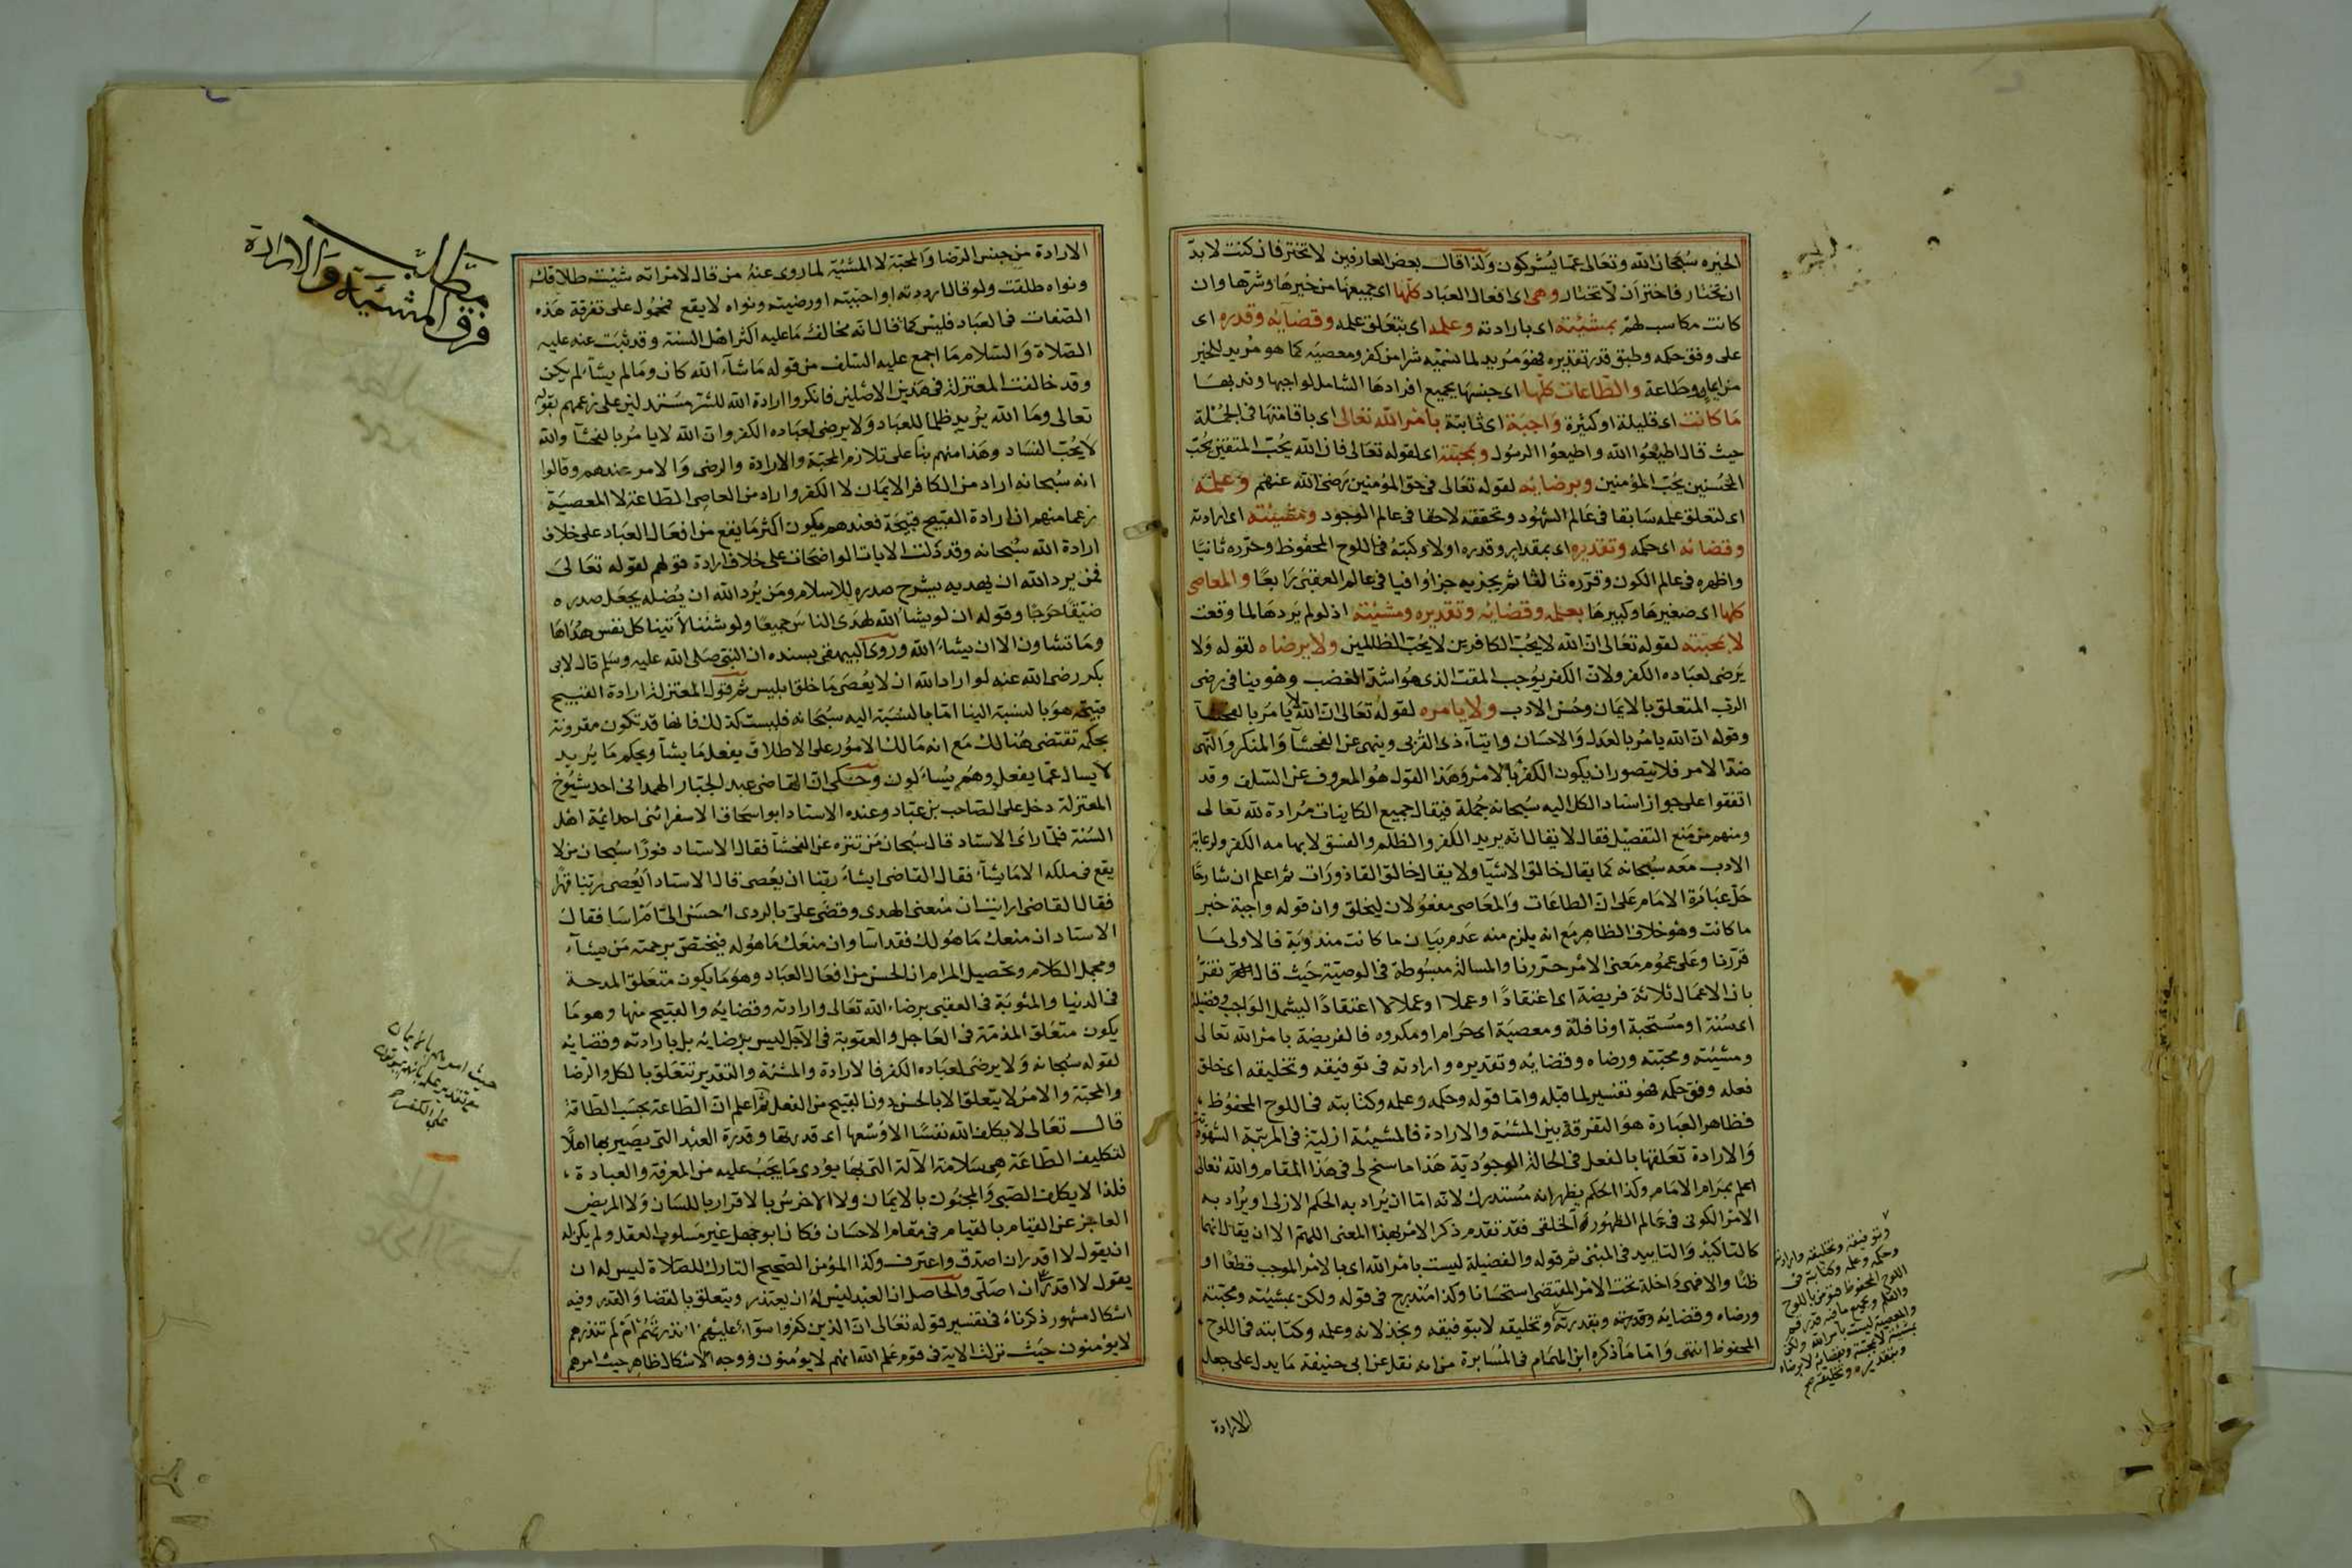 الخيرة سبحان الله وتعالى عما يشركون ولذا قال بعض العارفين لا تختر فان كنت لا بد
ان تختار فاختر ان لا تختار وهي اى افعال العباد كلها اى جميعها من خيرها وشرها وان
كانت مكاسب لهم بمشيئته اى بارادته وعلمه اى بتعلق علمه وقضائه وقدره اى
على وفق حكمه وطبق قدر تقديره فهو مريد لما نسميه شرا من كفر ومعصية كما هو مريد للخير
من ايمان وطاعة والطاعات كلها اى جنسها بجميع افرادها الشامل لواجبها وندبها
ما كانت اى قليلة او كثيرة واجبة اى ثابتة بامر الله تعالى اى باقامتها فى الجملة
حيث قال اطيعوا الله واطيعوا الرسول وبمحبته اى لقوله تعالى فان الله يحب المتقين يحب
المحسنين يحب المؤمنين وبرضائه لقوله تعالى فى حق المؤمنين رضى الله عنهم وعلمه
اى لتعلق علمه سابقا فى عالم الشهود وتحققه لاحقا فى عالم الوجود ومشيئته اى ارادته
وقضائه اى حكمه وتقديره اى بمقدار وقدره اولا وكتبه فى اللوح المحفوظ وحرره ثانيا
واظهره فى عالم الكون وقرره ثالثا ثم يجزيه جزاء وافيا فى عالم العقبى رابعا والمعاصى
كلها اى صغيرها وكبيرها بعلمه وقضائه وتقديره ومشيئته اذ لو لم يردها لما وقعت
لا بمحبته لقوله تعالى ان الله لا يحب الكافرين لا يحب الظالمين ولا برضاه لقوله ولا
يرضى لعباده الكفر ولان الكفر يوجب المقت الذى هو اشد الغضب وهو ينافى رضى
الرب المتعلق بالايمان وحسن الادب ولا بامره لقوله تعالى ان الله لا يامر بالفحشآ
وقوله ان الله يامر بالعدل والاحسان وايتآء ذى القربى وينهى عن الفحشآ والمنكر والنهى
ضد الامر فلا يتصور ان يكون الكفر بالامر وهذا القول هو المعروف عن السلف وقد
اتفقوا على جواز اسناد الكل اليه سبحانه جملة فيقال جميع الكاينات مرادة لله تعالى
ومنهم من منع التفصيل فقال لا يقال انه يريد الكفر والظلم والفسق لايهامه الكفر ولرعاية
الادب معه سبحانه كما يقال خالق الاشيآ ولا يقال خالق القاذورات ثم اعلم ان شارحا
حل عبارة الامام على ان الطاعات والمعاصى مفعولان لخلق وان قوله واجبة خبر
ما كانت وهو خلاف الظاهر مع انه يلزم منه عدم بيان ما كانت مندوبة فالاولى ما
قررنا وعلى عموم معنى الامر حررنا والمسالة مبسوطة فى الوصية حيث قال نقر
بان الاعمال ثلاثة فريضة اى اعتقادا وعملا او عملا لا اعتقادا ليشمل الواجب وفضيلة
اى سنة او مستحبة او نافلة ومعصية اى حرام او مكروه فالفريضة بامر الله تعالى
ومشيئته ومحبته ورضاه وقضائه وتقديره وارادته فى توفيقه وتخليقه اى خلق
فعله وفق حكمه فهو تفسير لما قبله واما قوله وحكمه وعلمه وكتابته فى اللوح المحفوظ
فظاهر العبارة هو التفرقة بين المشئة والارادة فالمشيئة ازلية فى المرتبة الشهودية
والارادة تعلقها بالفعل فى الحالة الوجودية هذا ما سنح لى فى هذا المقام والله تعالى
اعلم بمرام الامام وكذا الحكم يظهر انه مستدرك لانه اما ان يراد به الحكم الازلى او يراد به
الامر الكونى فى عالم الظهور الخلقى فقد تقدم ذكر الامر بهذا المعنى اللهم الا ان يقال انهما
كالتاكيد والتاييد فى المبنى ثم قوله والفضيلة ليست بامر الله اى بالامر الموجب قطعا او
ظنا والا فهى داخلة تحت الامر المقتضى استحسانا وكذا مندرج فى قوله ولكن بمشيئته ومحبته
ورضاه وقضائه وقدرته وبقدرته وتخليقه لا بتوفيقه وبخذلانه وعلمه وكتابته فى اللوح
المحفوظ انتهى واما ما ذكره ابن الهمام فى المسايرة من انه نقل عن ابى حنيفة ما يدل على جعل
الارادة
وتوفيقه وتخليقه وارادته
وحكمه وعلمه وكتابته فى
اللوح المحفوظ فنؤمن باللوح
والقلم وبجميع ما فيه قد رقم
والمعصية ليست بامر الله ولكن
بمشيئته لا بمحبته وبقضائه لا برضاه
وبتقديره وتخليقه صح
الارادة من جنس الرضا والمحبة لا المشيئة لما روى عنه من قال لامراته شئت طلاقك
ونواه طلقت ولو قال اردته او احببته او رضيته ونواه لا يقع فمحمول على تفرقة هذه
الصفات فى العباد فليس كما قال انه مخالف ما عليه اكثر اهل السنة وقد ثبت عنه عليه
الصلاة والسلام ما اجمع عليه السلف من قوله ما شآء الله كان وما لم يشآ لم يكن
وقد خالفت المعتزلة فى هذين الاصلين فانكروا ارادة الله للشر مستدلين على زعمهم بقوله
تعالى وما الله يريد ظلما للعباد ولا يرضى لعباده الكفر وان الله لا يامر بالفحشآ والله
لا يحب الفساد وهذا منهم بنآ على تلازم المحبة والارادة والرضى والامر عندهم وقالوا
انه سبحانه اراد من الكافر الايمان لا الكفر واراد من العاصى الطاعة لا المعصية
زعما منهم ان ارادة القبيح قبيحة فعندهم يكون اكثر ما يقع من افعال العباد على خلاف
ارادة الله سبحانه وقد دلت الايات الواضحات على خلاف ارادة قولهم لقوله تعالى
فمن يرد الله ان يهديه يشرح صدره للاسلام ومن يرد الله ان يضله يجعل صدره
ضيقا حرجا وقوله ان لو يشآ الله لهدى الناس جميعا ولو شئنا لآتينا كل نفس هداها
وما تشاون الا ان يشاء الله وروى البيهقى بسنده ان النبى صلى الله عليه وسلم قال لابى
بكر رضى الله عنه لو اراد الله ان لا يعصى ما خلق ابليس ثم قول المعتزلة ارادة القبيح
قبيحة هو بالنسبة الينا اما بالنسبة اليه سبحانه فليست كذلك فانها قد تكون مقرونة
بحكمة تقتضى هنالك مع انه مالك الامور على الاطلاق يفعل ما يشآ ويحكم ما يريد
لا يسال عما يفعل وهم يسالون وحكى ان القاضى عبد الجبار الهمدانى احد شيوخ
المعتزلة دخل على الصاحب بن عباد وعنده الاستاد ابو اسحاق الاسفرائنى احد ائمة اهل
السنة فلما راى الاستاد قال سبحان من تنزه عن الفحشآ فقال الاستاد فورا سبحان من لا
يقع فى ملكه الا ما يشآء فقال القاضى ايشاء ربنا ان يعصى قال الاستاد ايعصى ربنا قهرا
فقال القاضى ارايت ان منعنى الهدى وقضى على بالردى احسن الى ام اسا فقال
الاستاد ان منعك ما هو لك فقد اسا وان منعك ما هو له فيختص برحمته من يشآء
ومجمل الكلام وتحصيل المرام ان الحسن من افعال العباد وهو ما يكون متعلق المدحة
فى الدنيا والمثوبة فى العقبى برضاء الله تعالى وارادته وقضائه والقبيح منها وهو ما
يكون متعلق المذمة فى العاجل والعقوبة فى الآجل ليس برضائه بل بارادته وقضائه
لقوله سبحانه ولا يرضى لعباده الكفر فالارادة والمشئة والتقدير تتعلق بالكل والرضا
والمحبة والامر لا يتعلق الا بالحسن دون القبيح من الفعل ثم اعلم ان الطاعة بحسب الطاقة
قال تعالى لا يكلف الله نفسا الا وسعها اى قدرتها وقدرة العبد التى يصير بها اهلا
لتكليف الطاعة هى سلامة الآلة التى بها يؤدى ما يجب عليه من المعرفة والعبادة
فلذا لا يكلف الصبى والمجنون بالايمان ولا الاخرس بالاقرار باللسان ولا المريض
العاجز عن القيام بالقيام فى مقام الاحسان فكان ابو جهل غير مسلوب العقل ولم يكن له
ان يقول لا اقدر ان اصدق واعترف وكذا المؤمن الصحيح التارك للصلاة ليس له ان
يقول لا اقدر ان اصلى والحاصل ان العبد ليس له ان يعتذر ويتعلق بالقضا والقدر وفيه
اشكال مشهور ذكرناه فى تفسير قوله تعالى ان الذين كفروا سوآء عليهم اانذرتهم ام لم تنذرهم
لا يؤمنون حيث نزلت الاية فى قوم علم الله انهم لا يؤمنون ووجه الاشكال ظاهر حيث امرهم
مطلب
فرق المشئية والارادة
حيث امرهم بالايمان
مع تقدير علمه بانهم يموتون
على الكفر صح